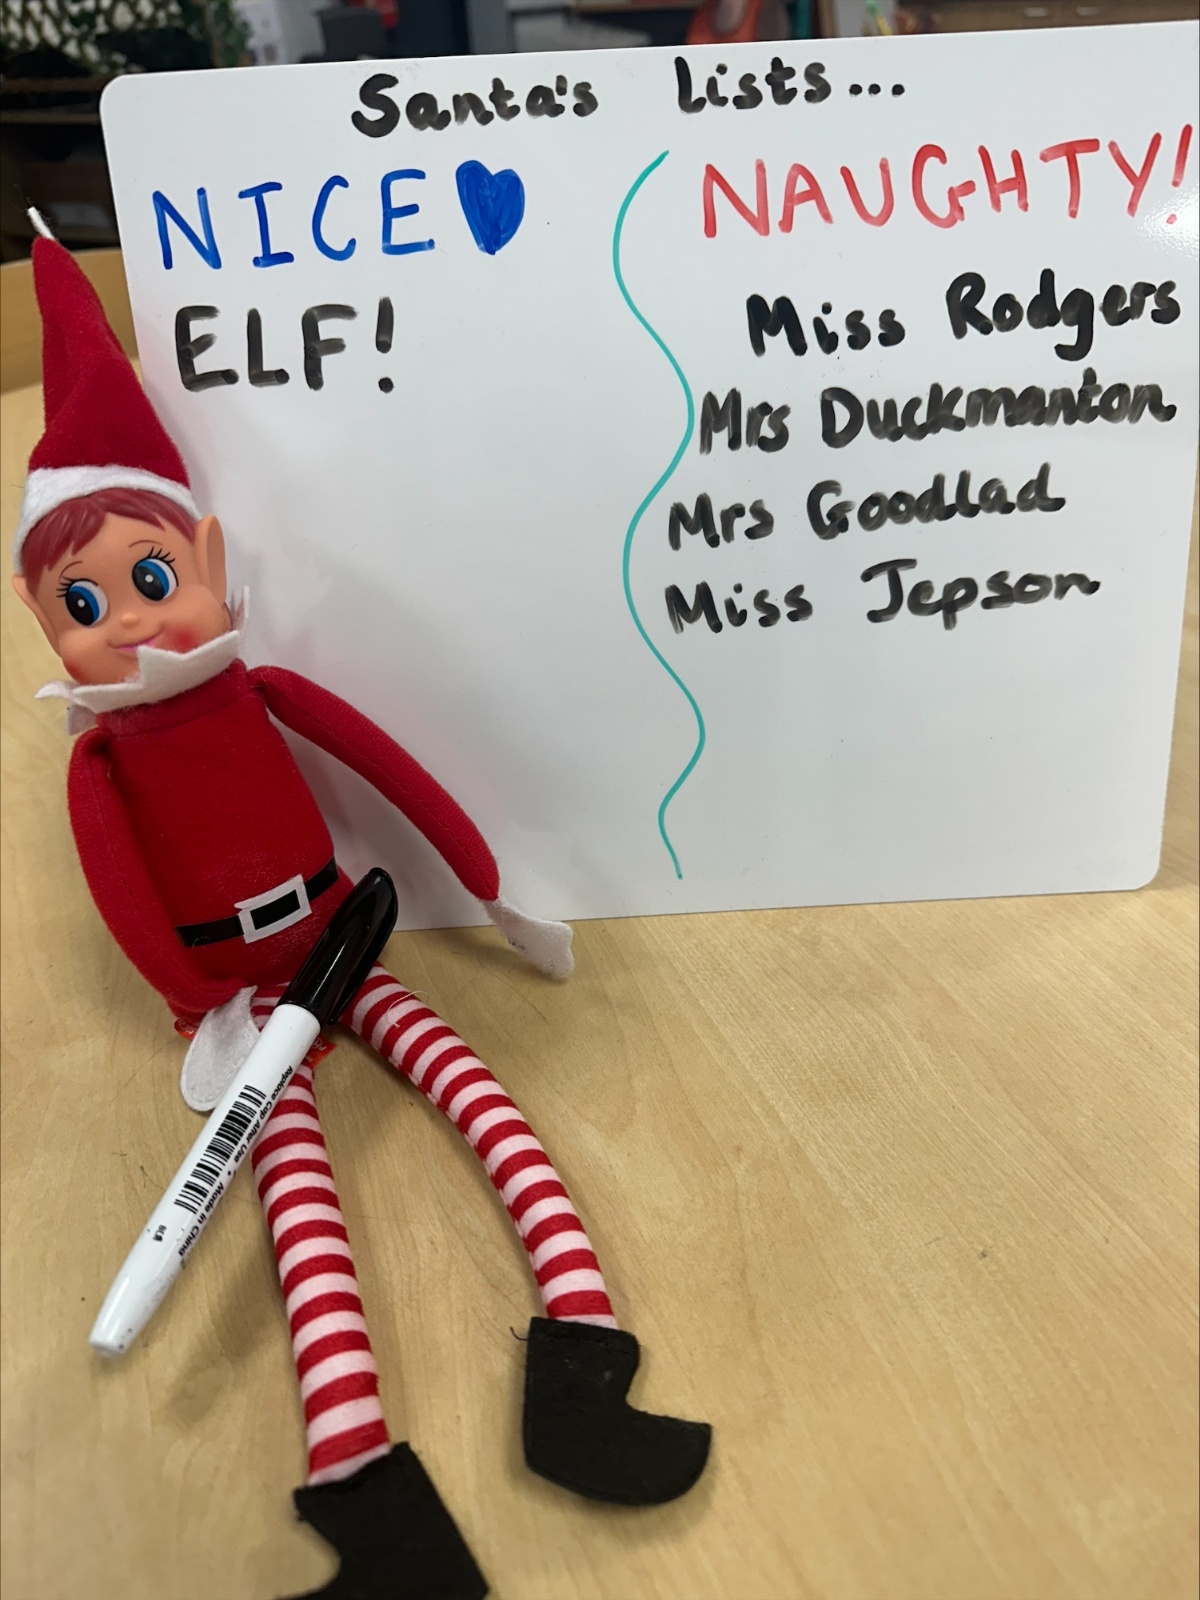 Santa's Lists...
NICE
ELF!
NAUGHTY!
Miss Rodgers
Mrs Duckmanton
Mrs Goodlad
Miss Jepson
Replace Cap After Use • Made in China